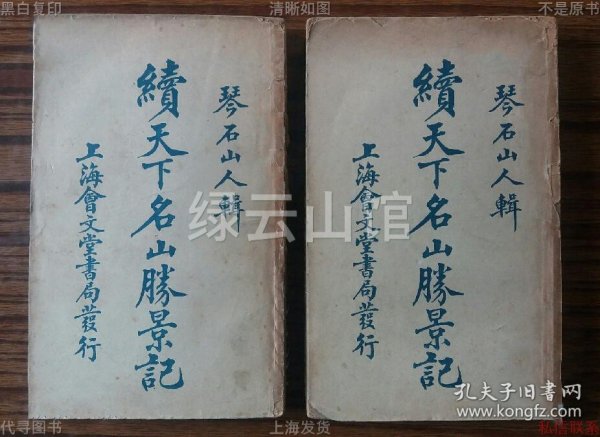 黑白复印
清晰如图
不是原书
琴石山人輯
續天下名山勝景記
上海會文堂書局發行
琴石山人輯
續天下名山勝景記
上海會文堂書局發行
绿云山馆
孔夫子旧书网
www.kongfz.com
代寻图书
上海发货
私信联系